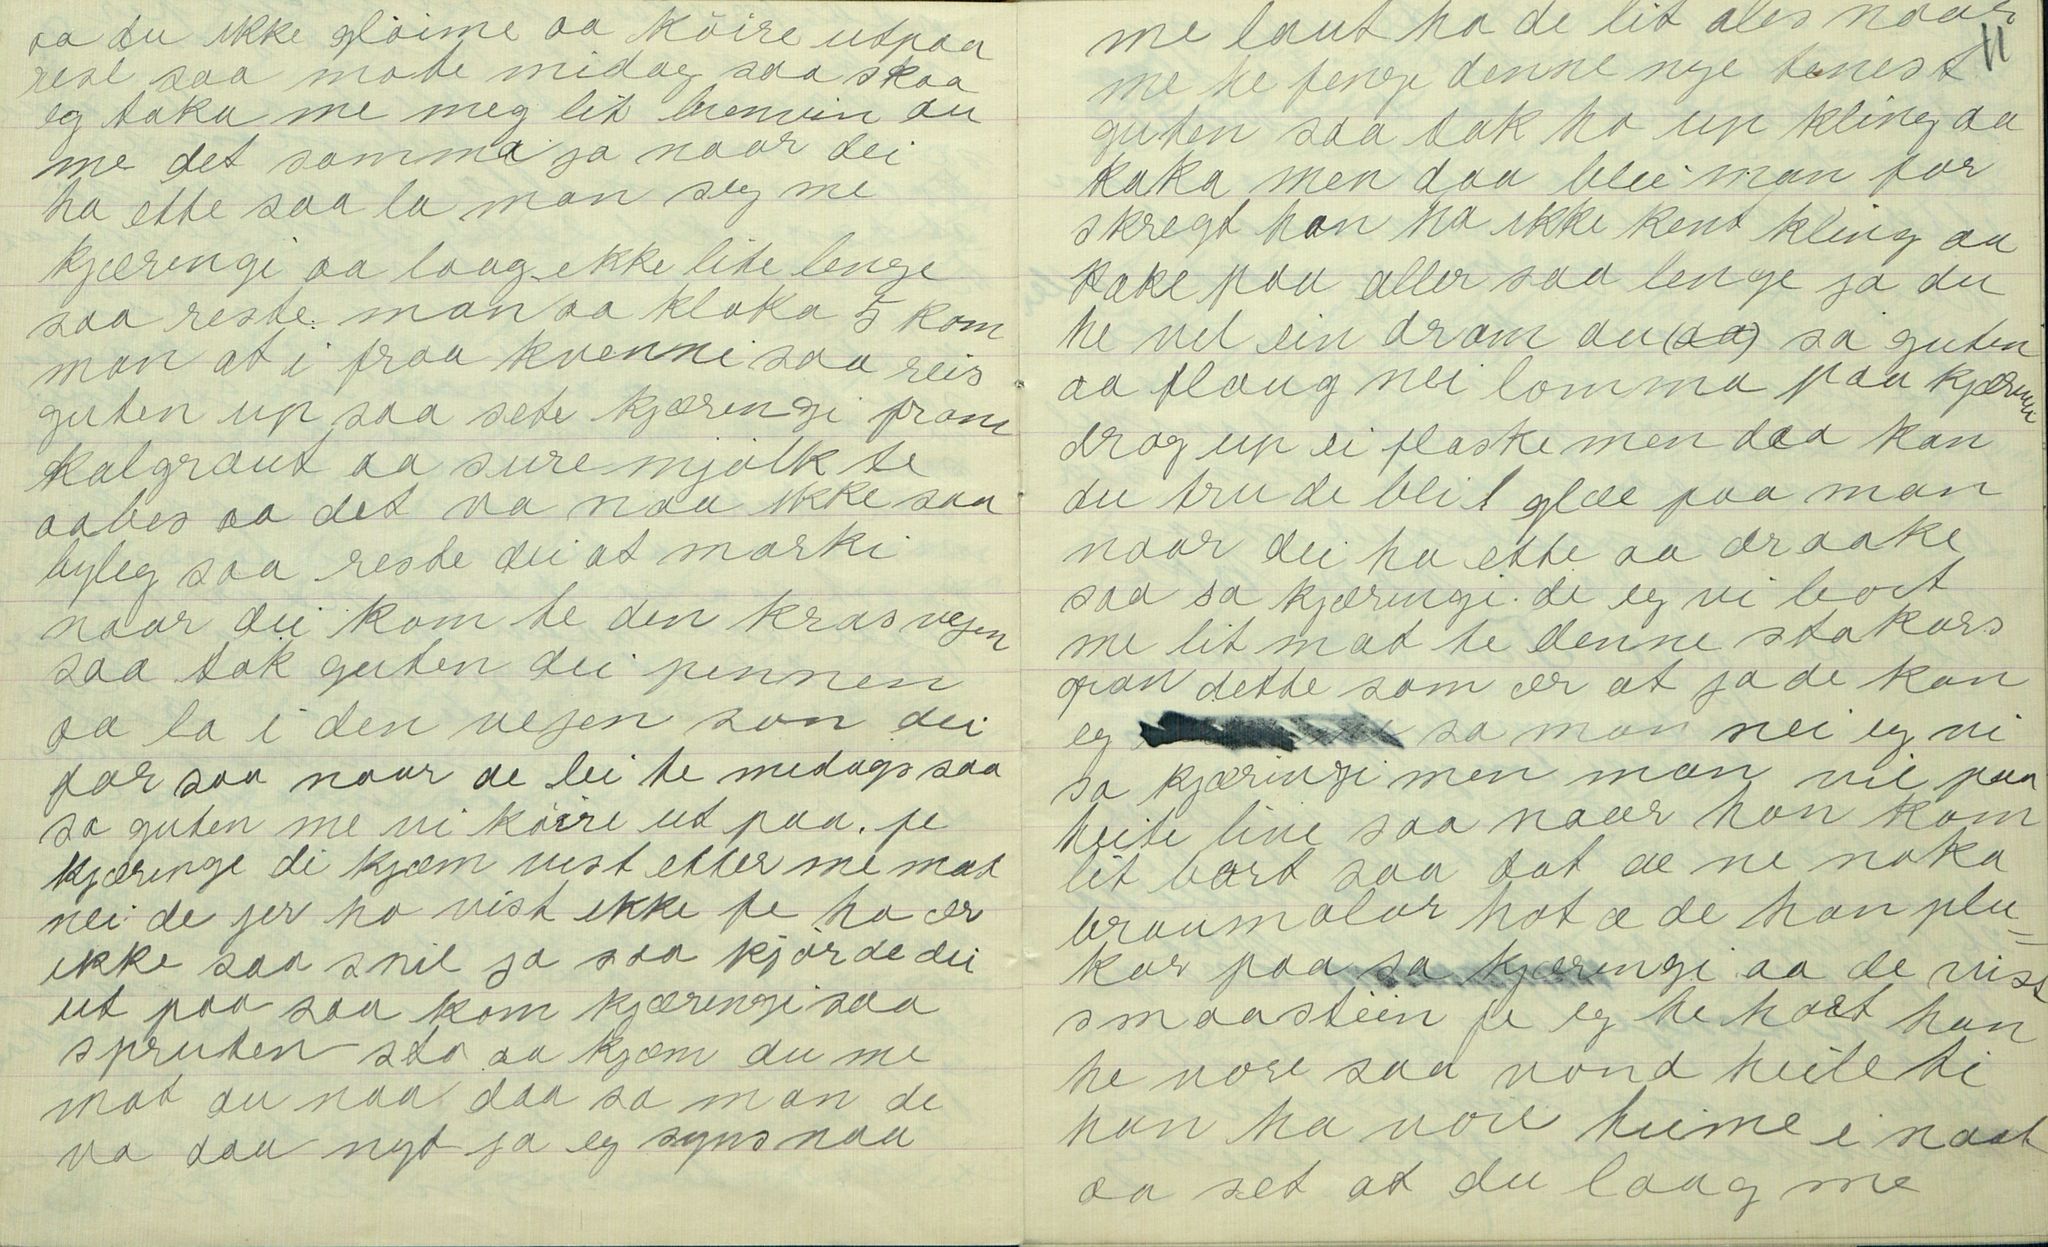 oa du ikke glöime oa köire utpaa
rese saa mote midag saa skaa
eg taka me meg lit brenvin ou
me det somma ja naar dei
ha ette saa la man seg me
kjæringi oa laag ikke lite lenge
saa reste man oa kloka 5 kom
man at i fraa kvenni saa reis
guten up saa sete kjæringi fram
kalgraut oa sure mjölk te
aabes oa det va naa ikke saa
byleg saa reste dei at marki
naar dei kom te den krasvejen
saa tok guten dei pennen
oa la i den vejen son dei
for saa naar de lei te medags saa
sa guten me vi köire ut paa. fe
kjæringe di kjæm vist etter me mat
nei de jer ho vist ikke fe ho ær
ikke saa snil ja saa kjörde dei
ut paa saa kom kjæringi saa
spruten sto oa kjæm du me
mat ou naa daa sa man de
va daa nyt ja eg syns naa
11
me laut ha de lit ales naar
me he fenge denne nye tenest
guten saa tok ho up kling oa
kaka men daa blei man for
skregt han ha ikke kent kling oa
kake paa aller saa lenge ja du
he vel ein dram ou (oa) sa guten
oa flaug nei lomma paa kjæringi
drog up ei flaske men daa kan
du tru de blei glæ paa man
naar dei ha ette oa draake
saa sa kjæringi de eg vi bort
me lit mat te denne stakars
gran dette som ær at ja de kan
eg sa man nei eg vi
sa kjæringi men man vil paa
heite live saa naar han kom
lit bort saa tot æ ne noka
braumolar hot æ de han plu=
kar paa sa kjæringi oa de vist
smaastein fe eg he hört han
he vore saa vond heile ti
han ha voie heime i naat
oa set at du laag me